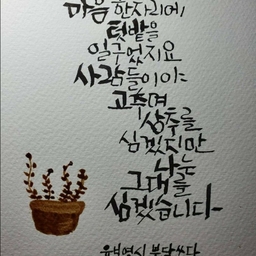 마음 한자리에
텃밭을
일구었지요
사람들이야
고추며
상추를
심겠지만
나는
그대를
심겠습니다
윤보영시 붓담쓰다